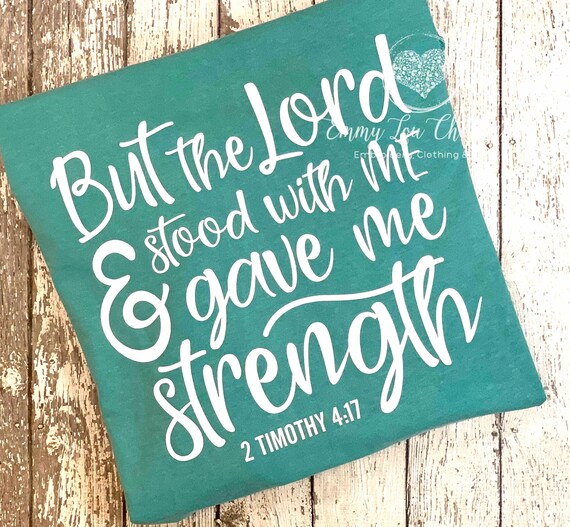 But the Lord
& stood with ME
gave me
strength
2 TIMOTHY 4:17
Emmy Lou Ch
Embroidery, Clothing &